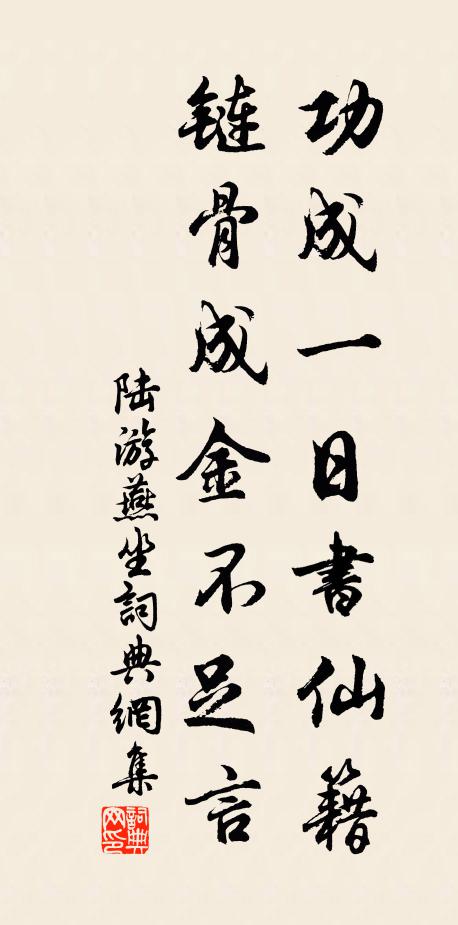 功成一日書仙籍
鏈骨成金不足言
陆游燕坐詞典網集
詞典网印